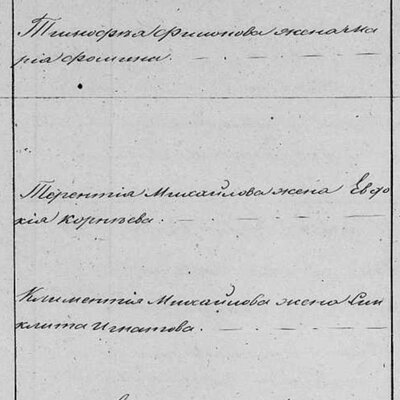 Тимофѣя Филипова жена Ма
рія Фомина.
Терентія Михайлова жена Евдо
кія Корнѣева.
Климентія Михайлова жена Син
клита Игнатова.